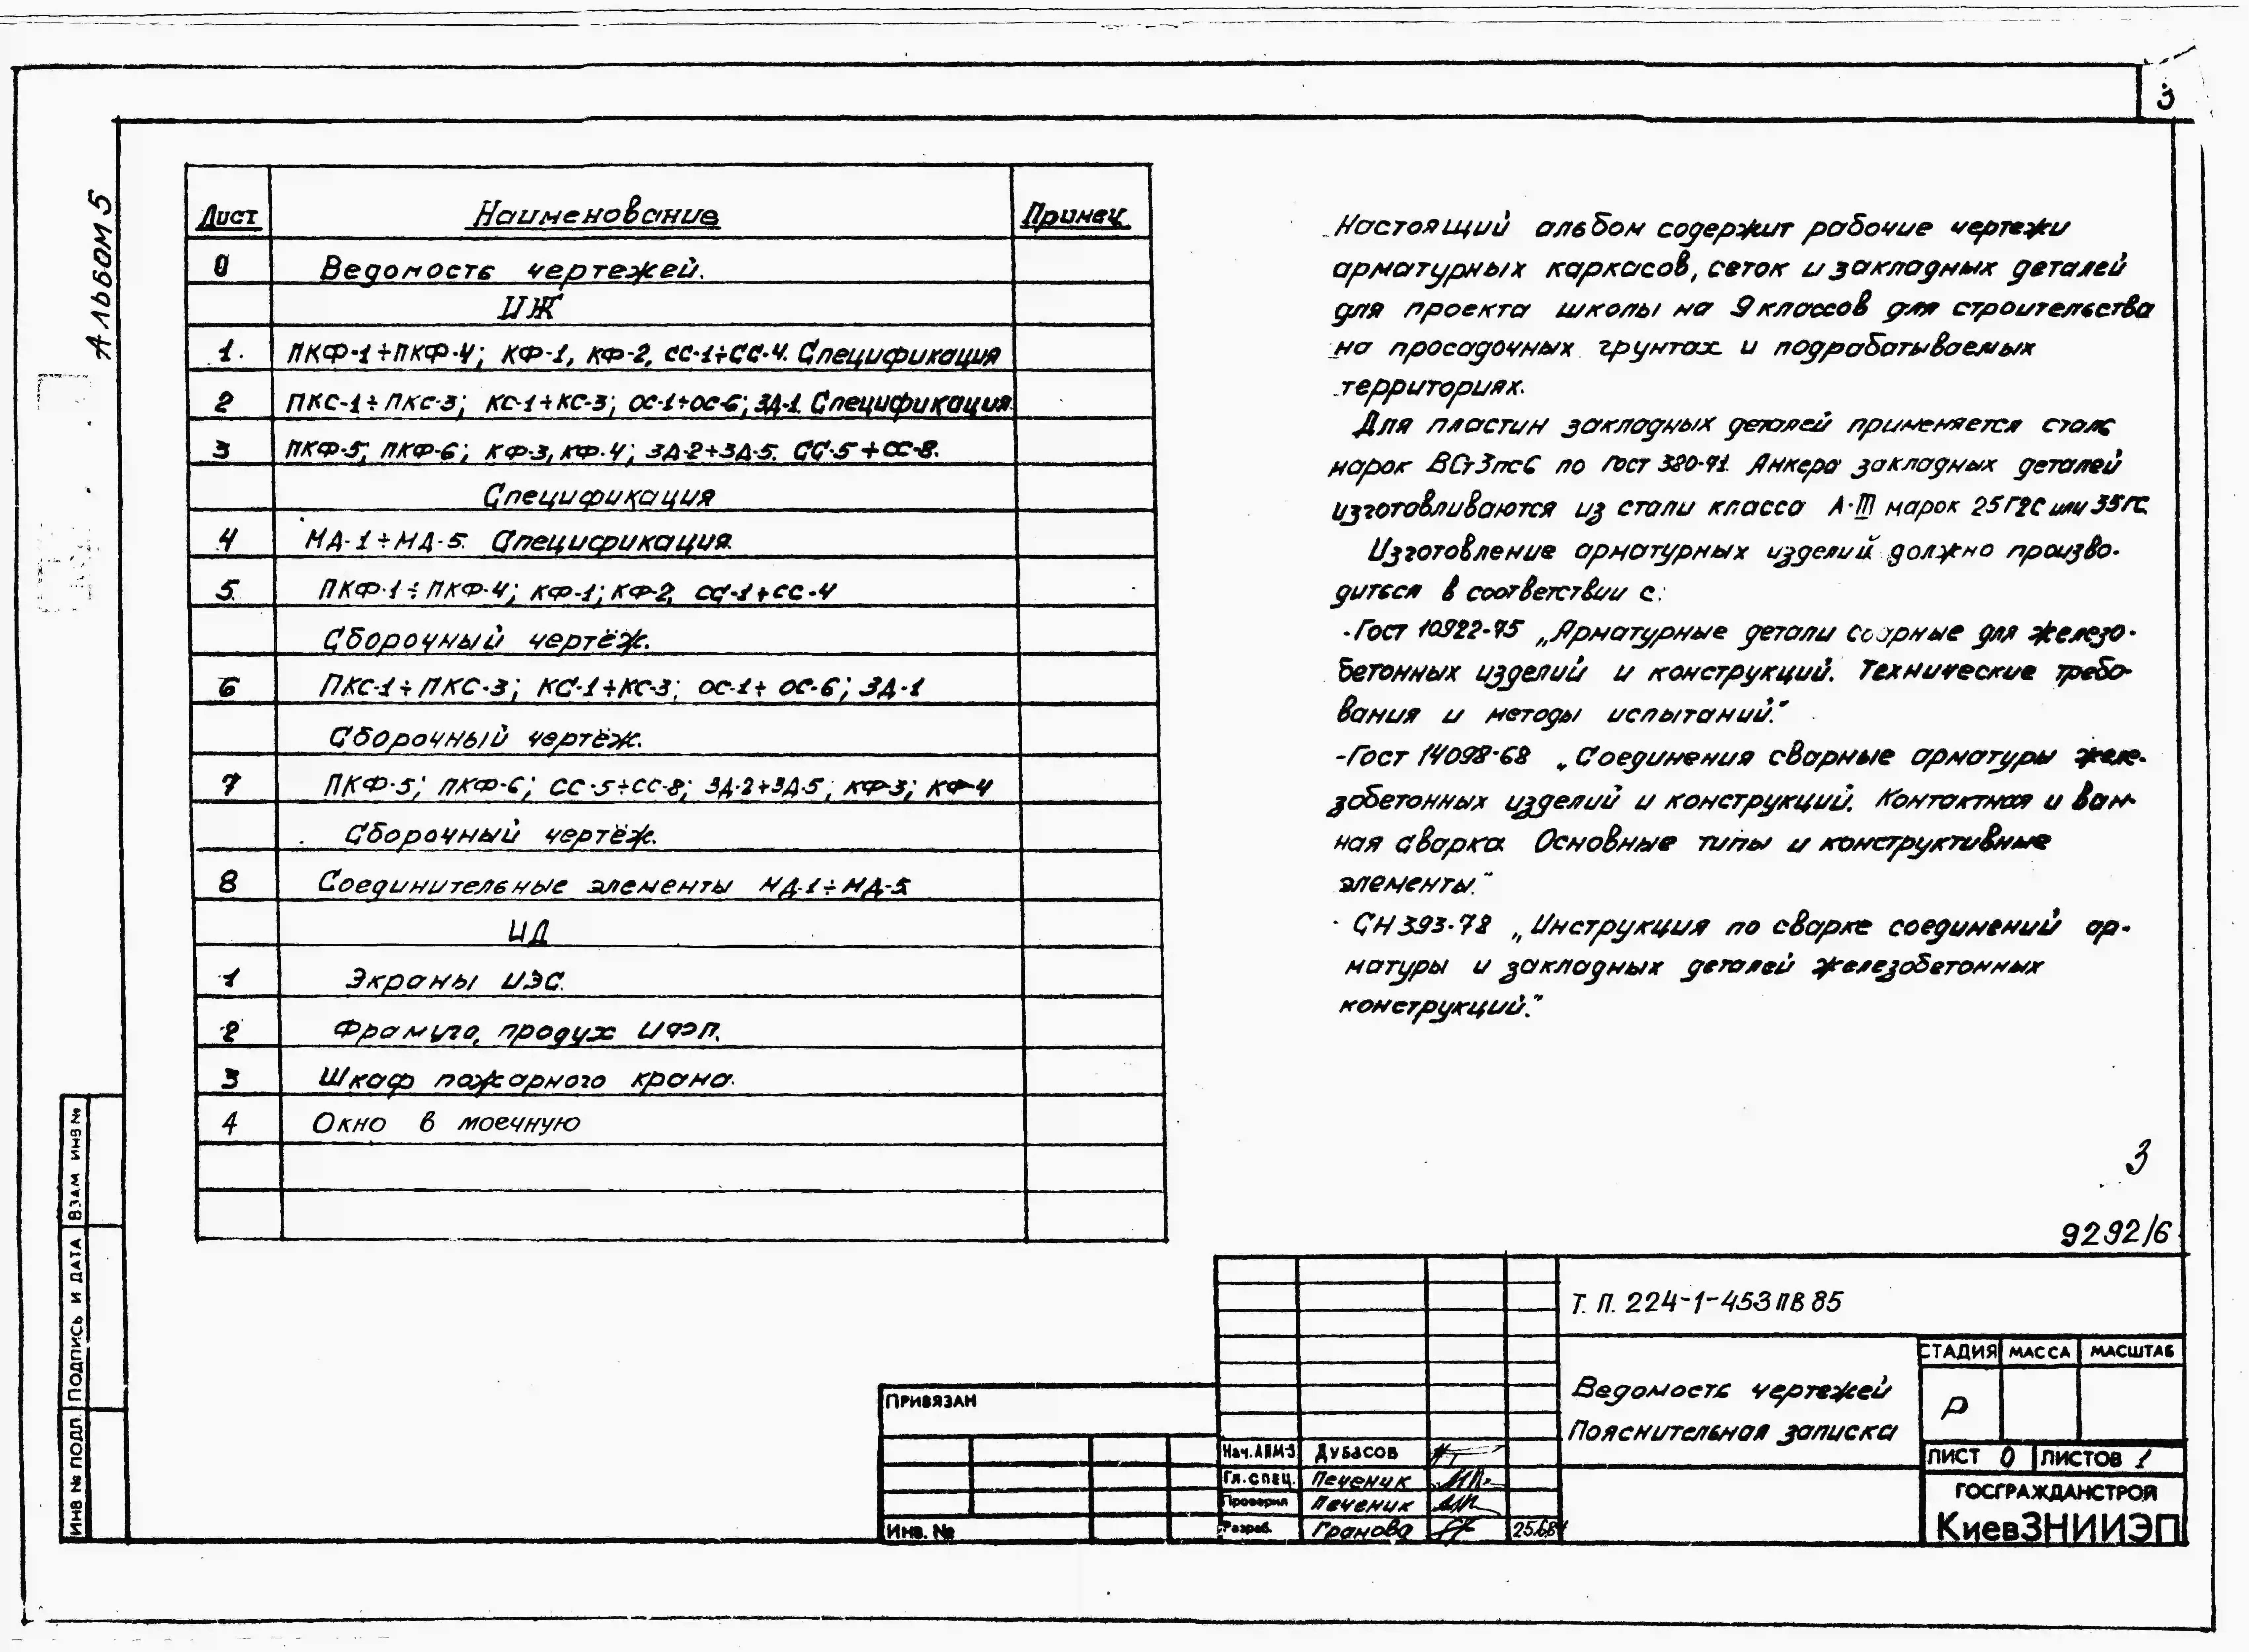 3
Альбом 5
Лист Наименование Примеч.
0 Ведомость чертежей.
ИЖ
1. ПКФ-1÷ПКФ-4; КФ-1, КФ-2, СС-1÷СС-4. Спецификация
2 ПКС-1÷ПКС-3; КС-1÷КС-3; ОС-1÷ОС-6; ЗД-1. Спецификация.
3 ПКФ-5; ПКФ-6; КФ-3, КФ-4; ЗД-2÷ЗД-5. СС-5÷СС-8.
Спецификация
4 МД-1÷МД-5. Спецификация.
5. ПКФ-1÷ПКФ-4; КФ-1; КФ-2, СС-1÷СС-4
Сборочный чертёж.
6 ПКС-1÷ПКС-3; КС-1÷КС-3; ОС-1÷ОС-6; ЗД-1
Сборочный чертёж.
7 ПКФ-5; ПКФ-6; СС-5÷СС-8; ЗД-2÷ЗД-5; КФ-3; КФ-4
Сборочный чертёж.
8 Соединительные элементы МД-1÷МД-5
ИД
1 Экраны ИЭС.
2 Фрамуга, продух ИФЭП.
3 Шкаф пожарного крана.
4 Окно в моечную
Настоящий альбом содержит рабочие чертежи
арматурных каркасов, сеток и закладных деталей
для проекта школы на 9 классов для строительства
на просадочных грунтах и подрабатываемых
территориях.
Для пластин закладных деталей применяется сталь
марок ВСт3пс6 по Гост 380-71. Анкера закладных деталей
изготавливаются из стали класса А-III марок 25Г2С или 35ГС.
Изготовление арматурных изделий должно произво-
диться в соответствии с:
-Гост 10922-75 „Арматурные детали сварные для железо-
бетонных изделий и конструкций. Технические требо-
вания и методы испытаний."
-Гост 14098-68 „Соединения сварные арматуры желе-
зобетонных изделий и конструкций. Контактная и ван-
ная сварка. Основные типы и конструктивные
элементы."
- СН 393-78 „Инструкция по сварке соединений ар-
матуры и закладных деталей железобетонных
конструкций."
3
9292/6
Т. П. 224-1-453ПВ85
Ведомость чертежей
Пояснительная записка
СТАДИЯ МАССА МАСШТАБ
Р
ЛИСТ 0 ЛИСТОВ 1
ГОСГРАЖДАНСТРОЙ
КиевЗНИИЭП
Привязан
Инв. №
Нач.АПМ-3 Дубасов
Гл.спец. Печеник
Проверил Печеник
Разраб. Гранова
ИНВ № ПОДЛ. ПОДПИСЬ И ДАТА ВЗАМ ИНВ №